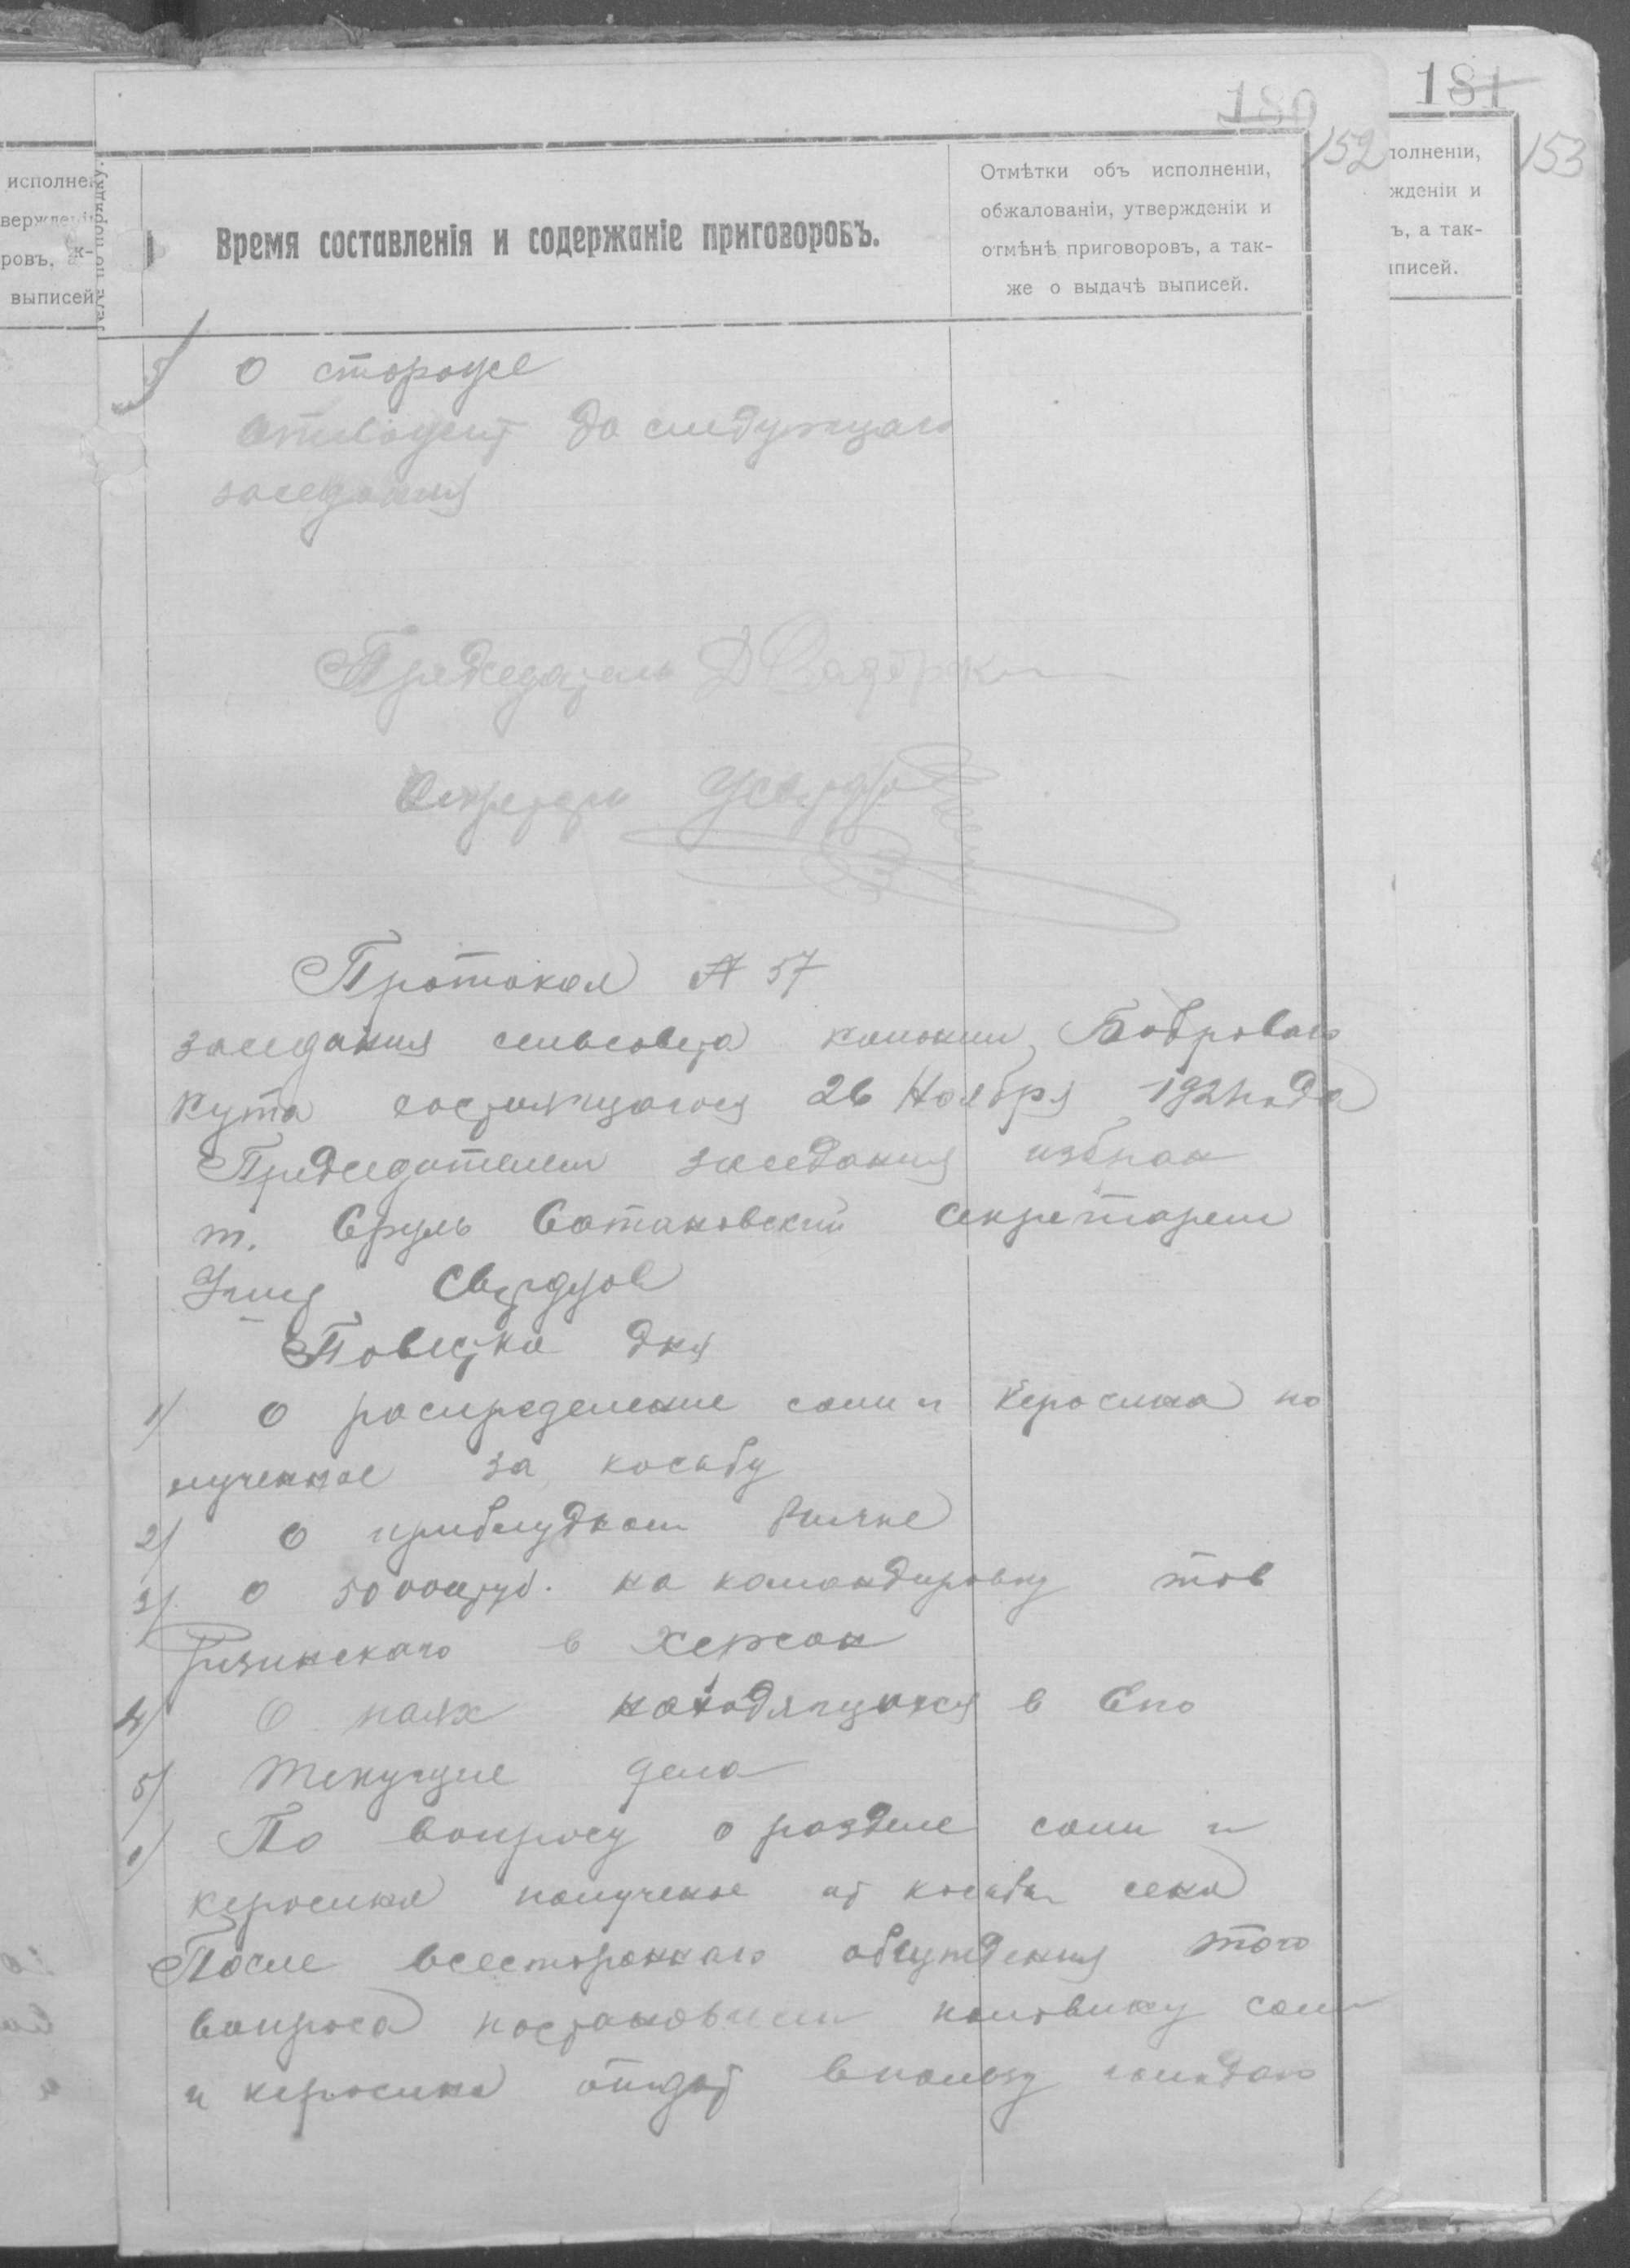 180
181
152
153
исполнен
ровъ,
выписей
Время составленія и содержаніе приговоровъ.
Отмѣтки объ исполненіи,
обжалованіи, утвержденіи и
отмѣнѣ приговоровъ, а так-
же о выдачѣ выписей.
полненіи,
жденіи и
ъ, а так-
писей.
О стороже
до следующаго
заседания
Председатель
Секретарь
Протокол № 57
заседания сельсовета колонии Боброваго
Кута состоящагося 26 Ноября 1921 года
Председателем заседания избран
т. Сруль Сатановский Секретарем
Повестка дня
1) О распределение соли и керосина по
лученное за косьбу
2) О приблудном
3) О 50000 руб. на командировку тов
в Херсон
4) О паях находящихся в Епо
5) Текущие дела
1) По вопросу о разделе соли и
керосина полученое от косьбы сена
После всестороннаго обсуждения этого
вопроса постановили половину соли
и керосина отдать в пользу